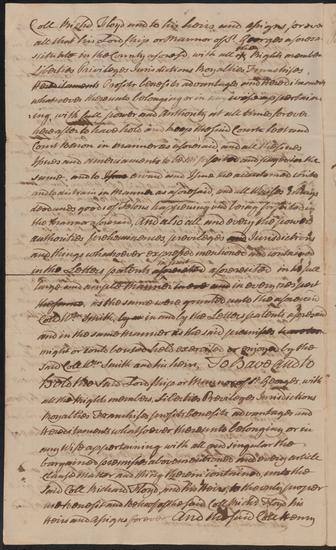 Coll. Richd Floyd and to his heirs and assigns, for ever
all that His Lordship or Mannor of St. Georges aforesd
scituate in the County aforesd, with all the Rights members
Liberties Priviledges Jurisdictions Royalties Franchises
Hereditaments Profits benefits advantages and Hereditaments
whatsoever thereunto belonging or in any wise appertain
ing, with full power and Authority at all time for ever
hereafter to have hold and keep the said Court Leet and
Court Baron in manner as aforesaid, and all Issues
fines and amerciaments to be
same, and to award and Issue the accustomed Writs
and in manner as aforesaid, and all Waifes Estrays
deodands goods of felons happening and being forfeited in
the Mannor aforesd, And also all and every the powers
authorities preheminences priviledges and Jurisdictions
and things whatsoever expressed mentioned and contained
in the Letters patents aforesaid in as full
large and ample manner and in every respect
the same, as the same were granted unto the aforesaid
Coll. Wm. Smith, by in and by the Letters patents aforesaid
and in the same manner as the said premises
might or could be used held exercised or enjoyed by the
said Coll. Wm. Smith and his heirs, To Have And to
Hold the said Lordship or Mannor of St. Georges, with
all the Rights members, Liberties Priviledges Jurisdictions
Royalties Franchises profits benefits advantages and
Hereditaments whatsoever thereunto belonging or in
any Wise appertaining with all and singular the
bargained premises abovementioned and every article
Clause Matter and thing therein contained, unto the
said Coll. Richard Floyd, and his Heirs, to the only proper
use benefit and Behoof of the said Coll. Richd. Floyd his
Heirs and assigns forever And the said Coll. Henry